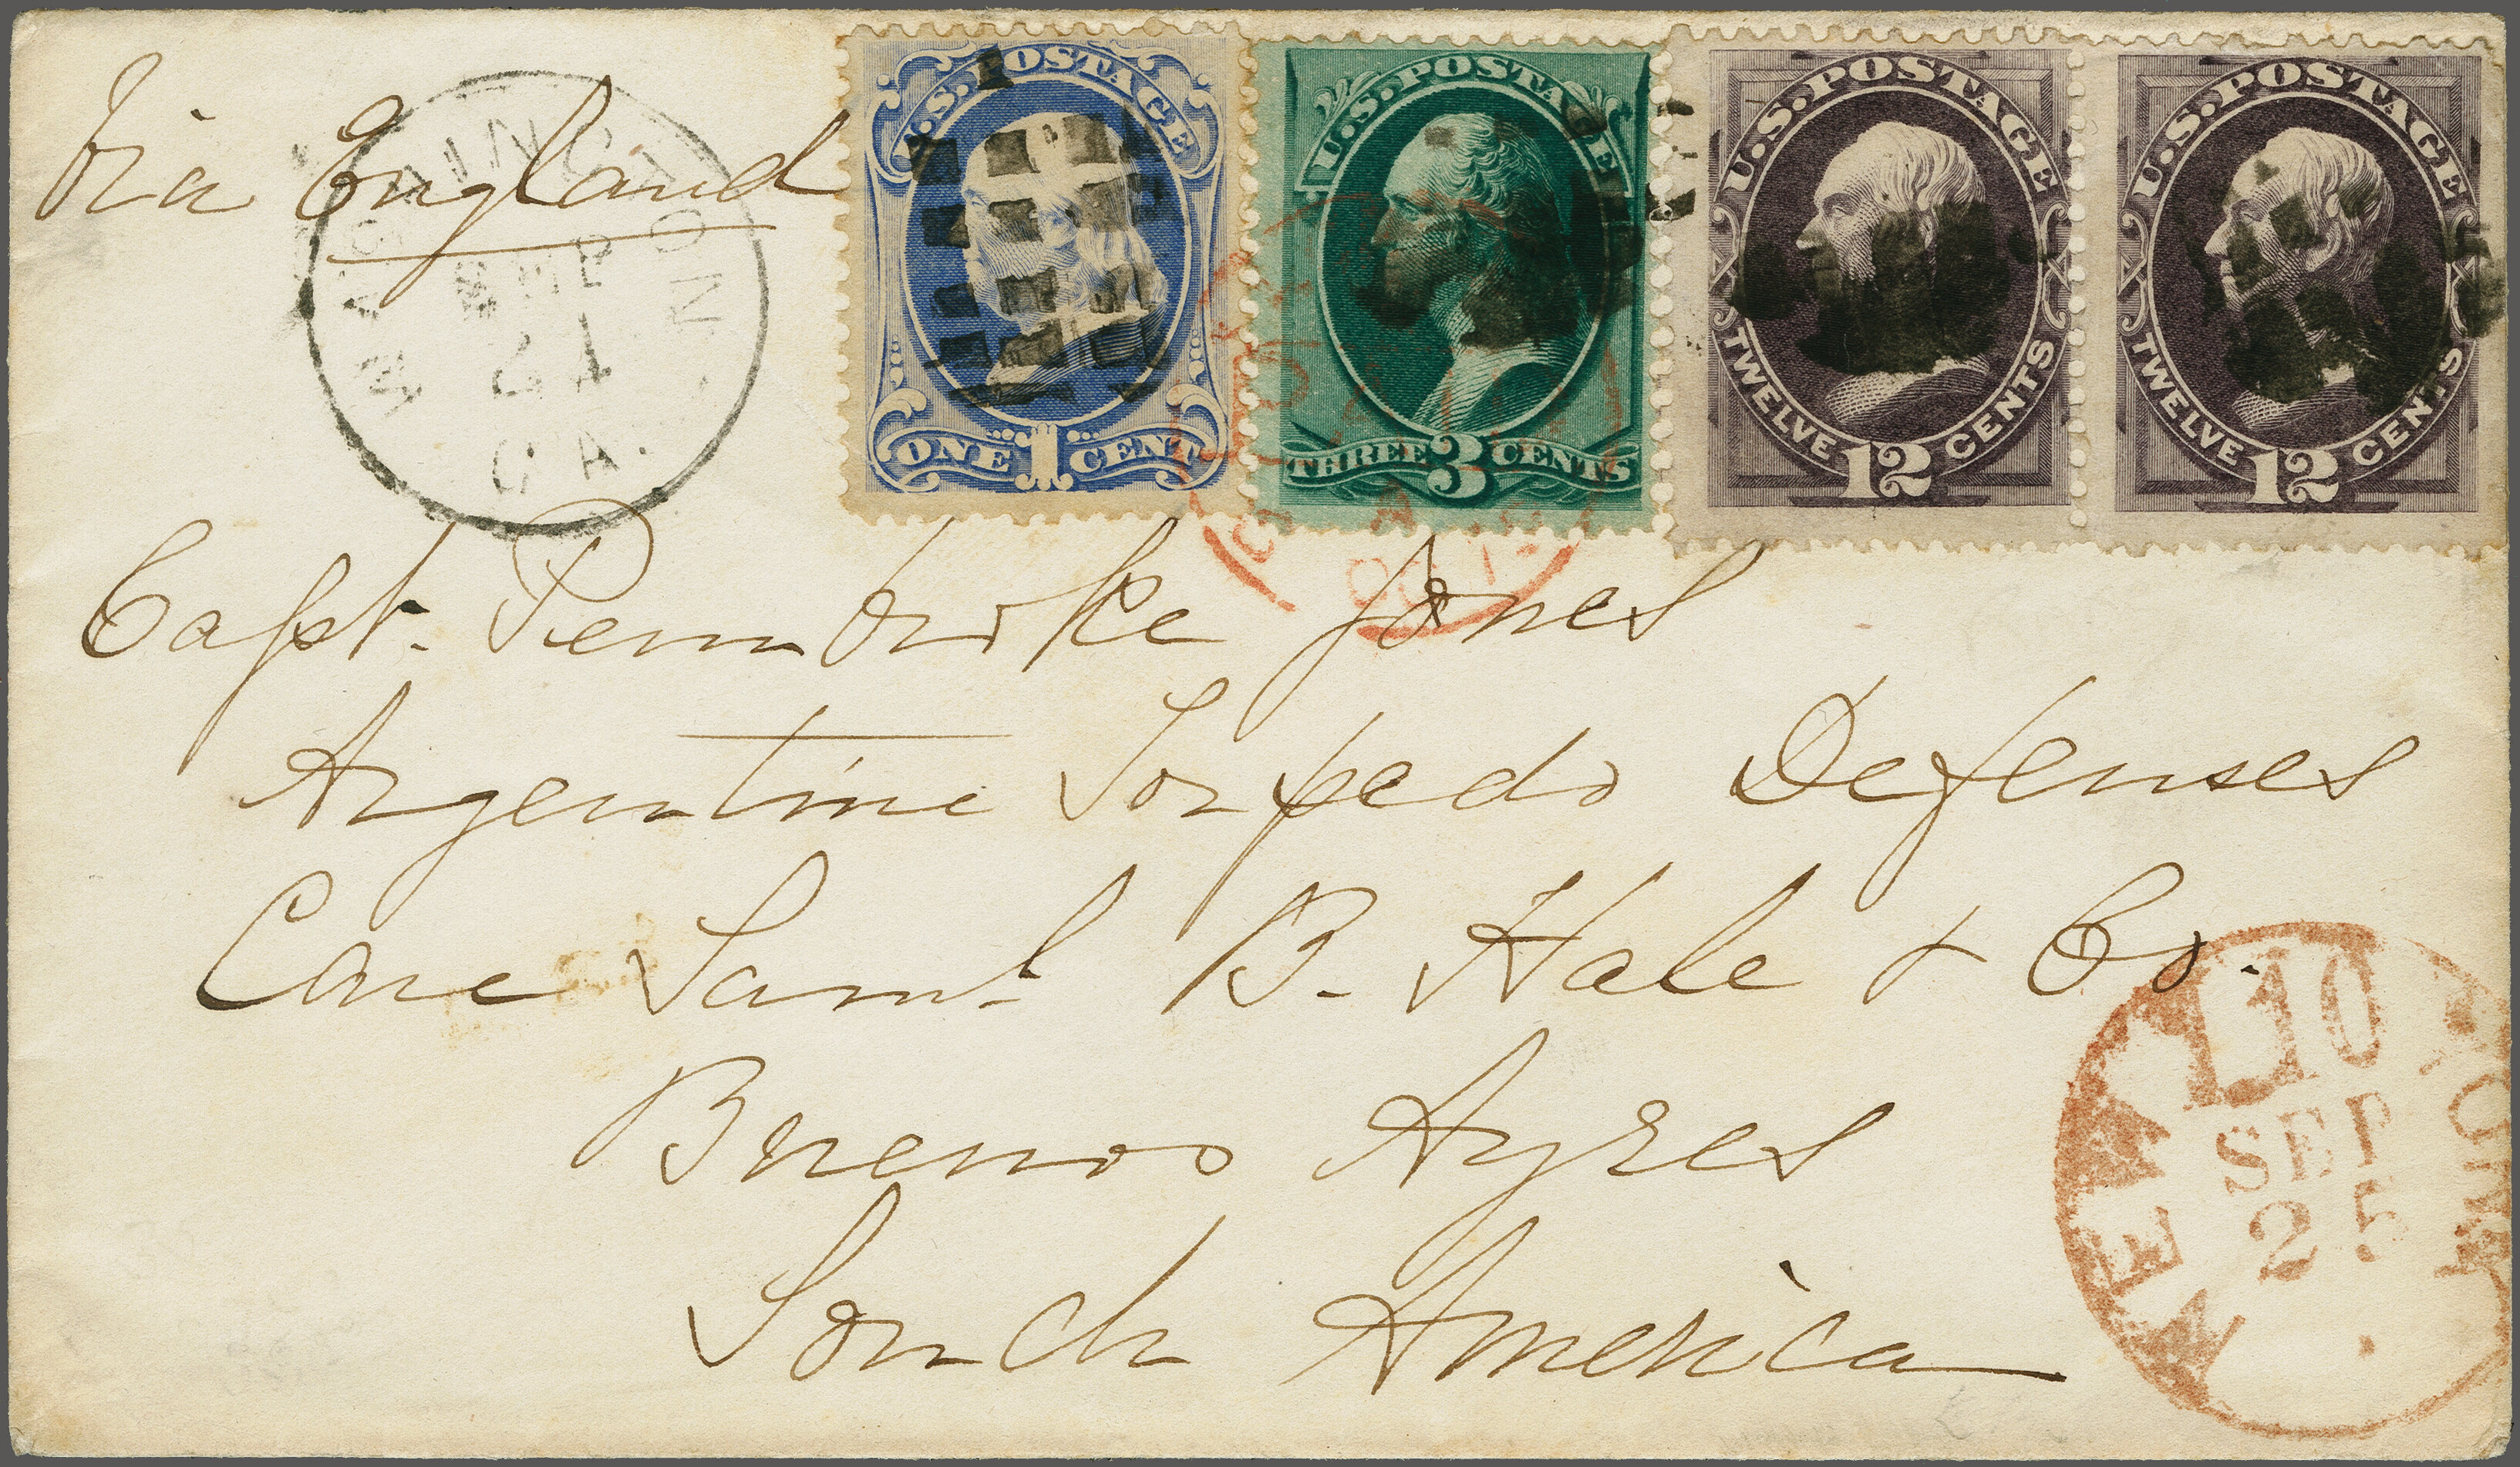 Via England
WASHINGTON
SEP
24
GA.
U.S. POSTAGE
ONE 1 CENT
U.S. POSTAGE
THREE 3 CENTS
U.S. POSTAGE
TWELVE 12 CENTS
U.S. POSTAGE
TWELVE 12 CENTS
Capt. Pembroke Jones
Argentine Torpedo Defenses
Care Saml. B. Hale & Co.
Buenos Ayres
South America
NEW YORK
10
SEP
25